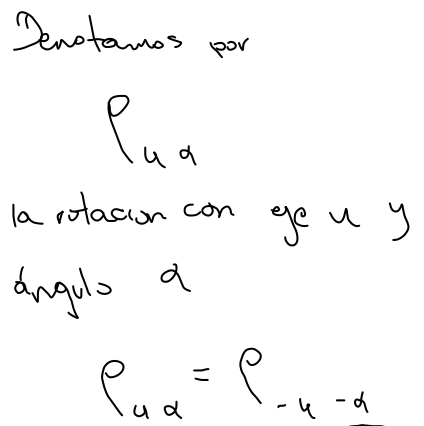 Denotamos por
ρ u α
la rotacion con eje u y
ángulo α
ρ u α = ρ -u -α